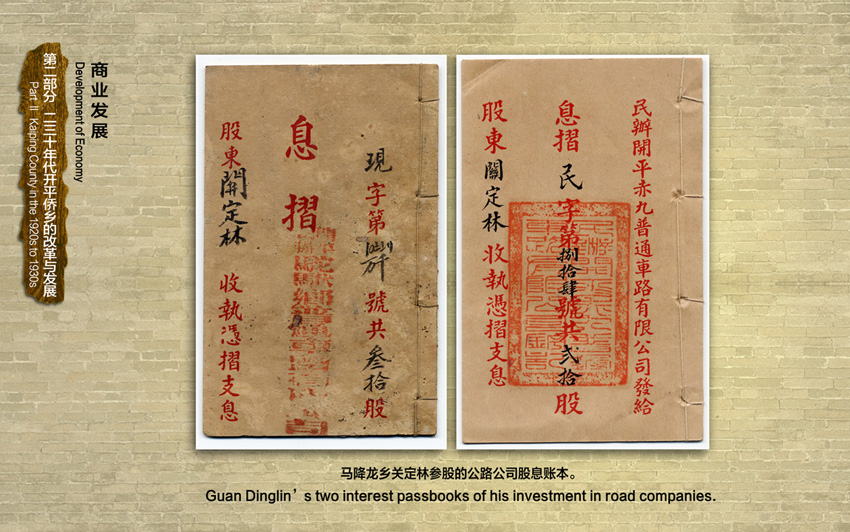 商业发展
Development of Economy
第二部分 二三十年代开平侨乡的改革与发展
Part II Kaiping County in the 1920s to 1930s
現字第 號共叁拾股
息摺
股東關定林收執憑摺支息
民辦開平赤九普通車路有限公司發給
息摺民字第捌拾肆號共弍拾股
股東關定林收執憑摺支息
马降龙乡关定林参股的公路公司股息账本。
Guan Dinglin’s two interest passbooks of his investment in road companies.